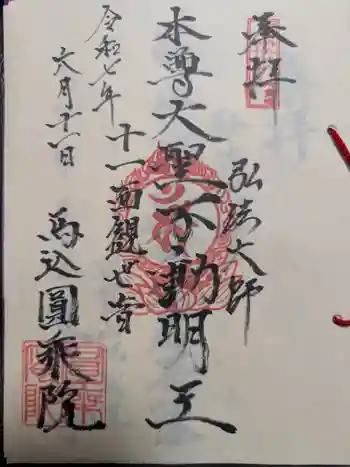 奉拝
弘法大師
本尊大聖不動明王
十一面観世音
令和七年
六月十一日
馬込圓乘院